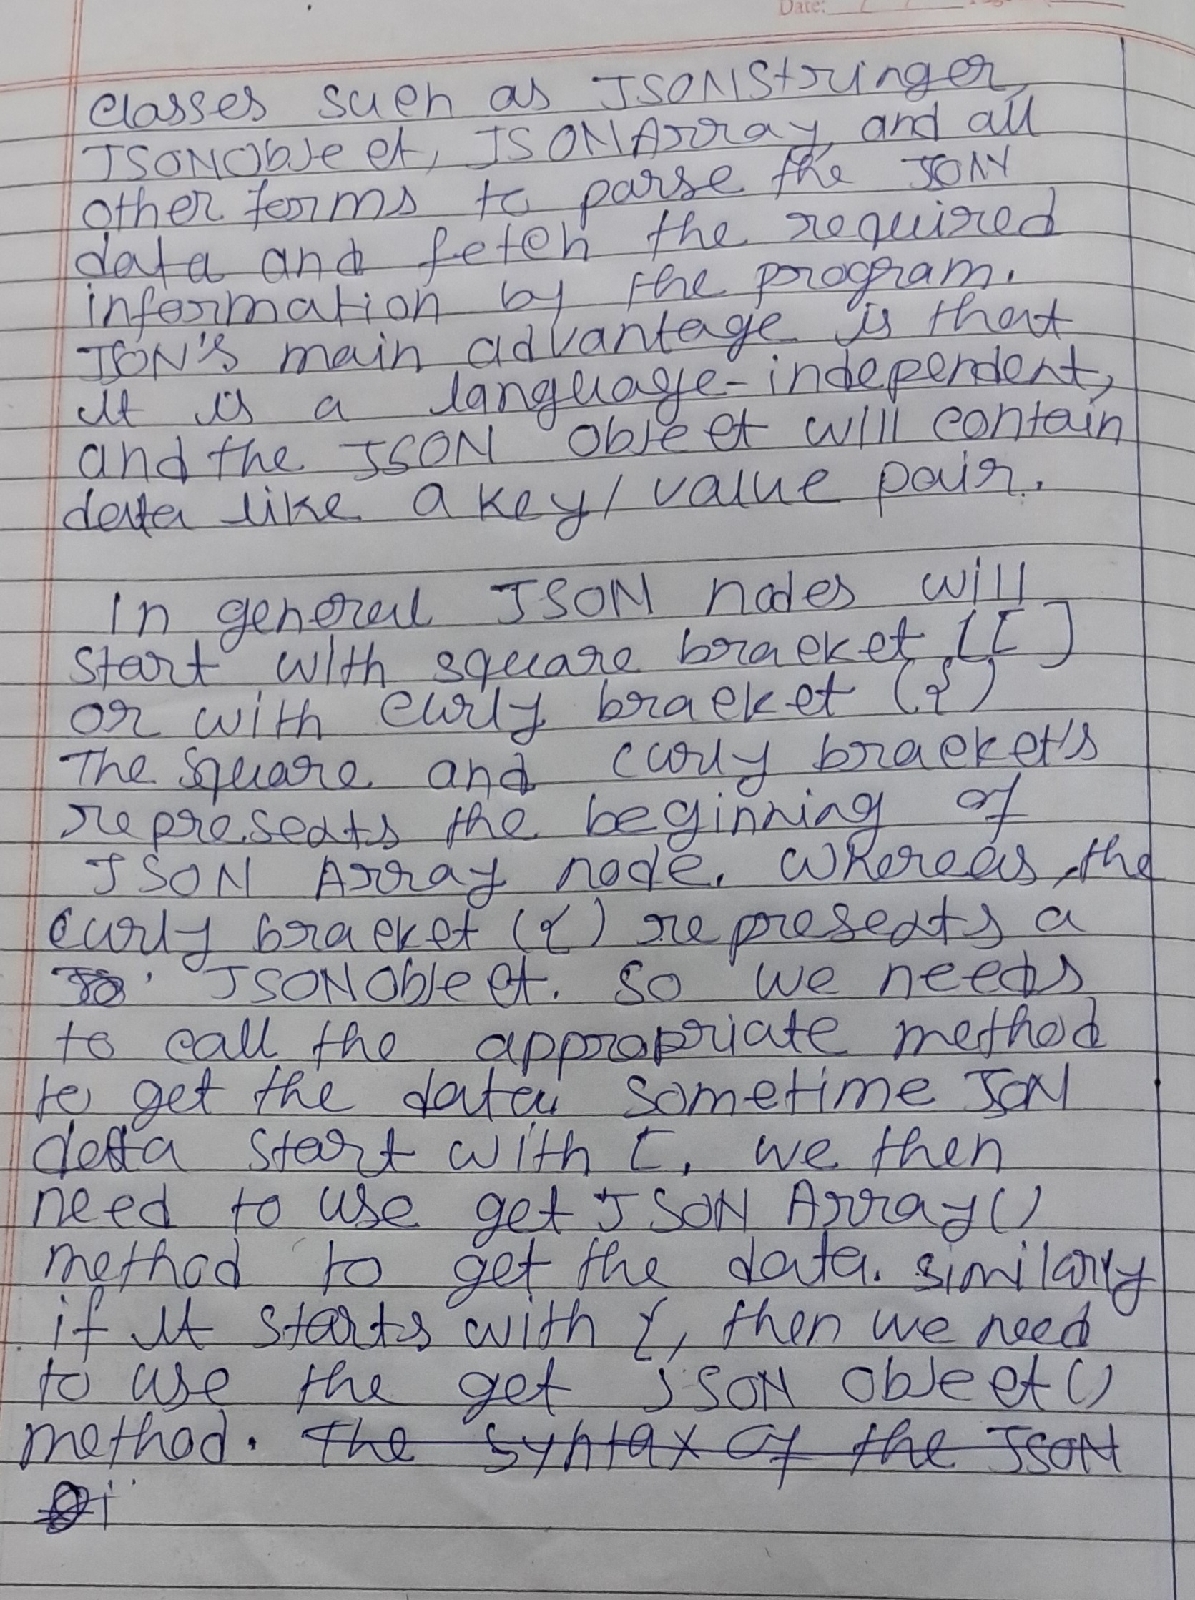 Date:
classes such as JSONStringer,
JSONObject, JSONArray, and all
other forms to parse the JSON
data and fetch the required
information by the program.
JSON's main advantage is that
it is a language-independent,
and the JSON object will contain
data like a key/value pair.
In general JSON nodes will
start with square bracket ([]
or with curly bracket ({)
The square and curly bracket's
represeats the beginning of
JSON Array node. Whereas, the
curly bracket ({) represeats a
JSONObject. So we needs
to call the appropriate method
to get the data. Sometime JSON
data start with [, we then
need to use getJSON Array()
method to get the data. similarly
if it starts with {, then we need
to use the get JSON object()
method. The syntax of the JSON